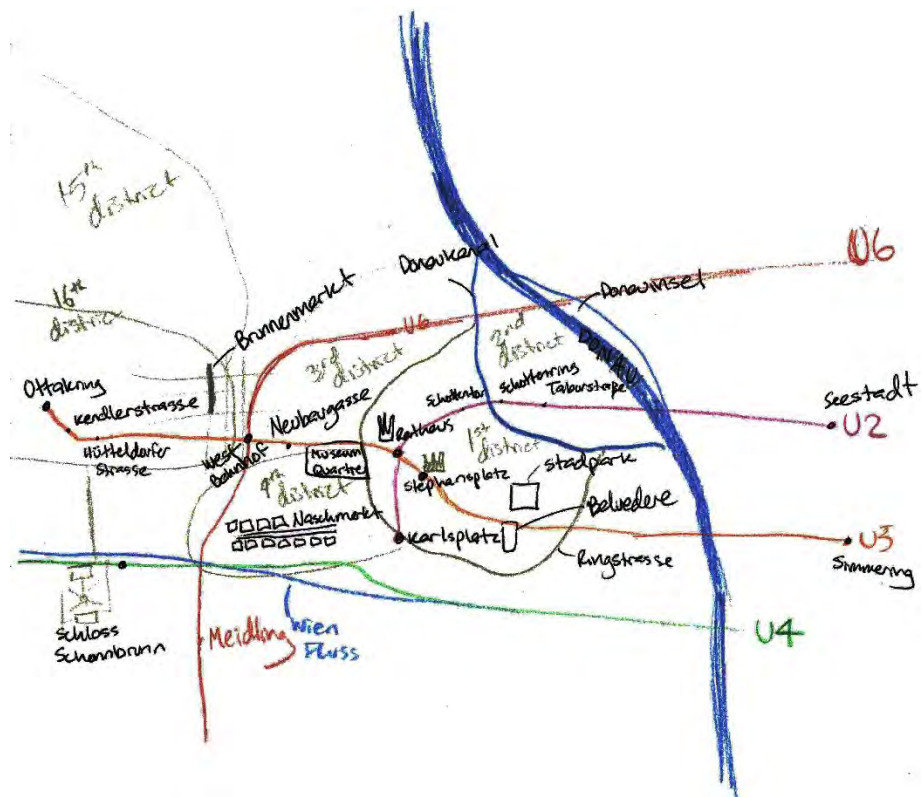 15th
district
16th
district
Brunnenmarkt
Donaukanal
U6
Donauinsel
U6
3rd
district
2nd
district
DONAU
Ottakring
Kendlerstrasse
Hütteldorfer
Strasse
West
Bahnhof
Neubaugasse
Museum
Quartre
Rathaus
Schottentor
Schottenring
Taborstraße
Seestadt
U2
1st
district
Stephansplatz
Stadpark
9th
district
Naschmarkt
Karlsplatz
Belvedere
Ringstrasse
U3
Simmering
Schloss
Schonnbrunn
Meidling
Wien
Fluss
U4